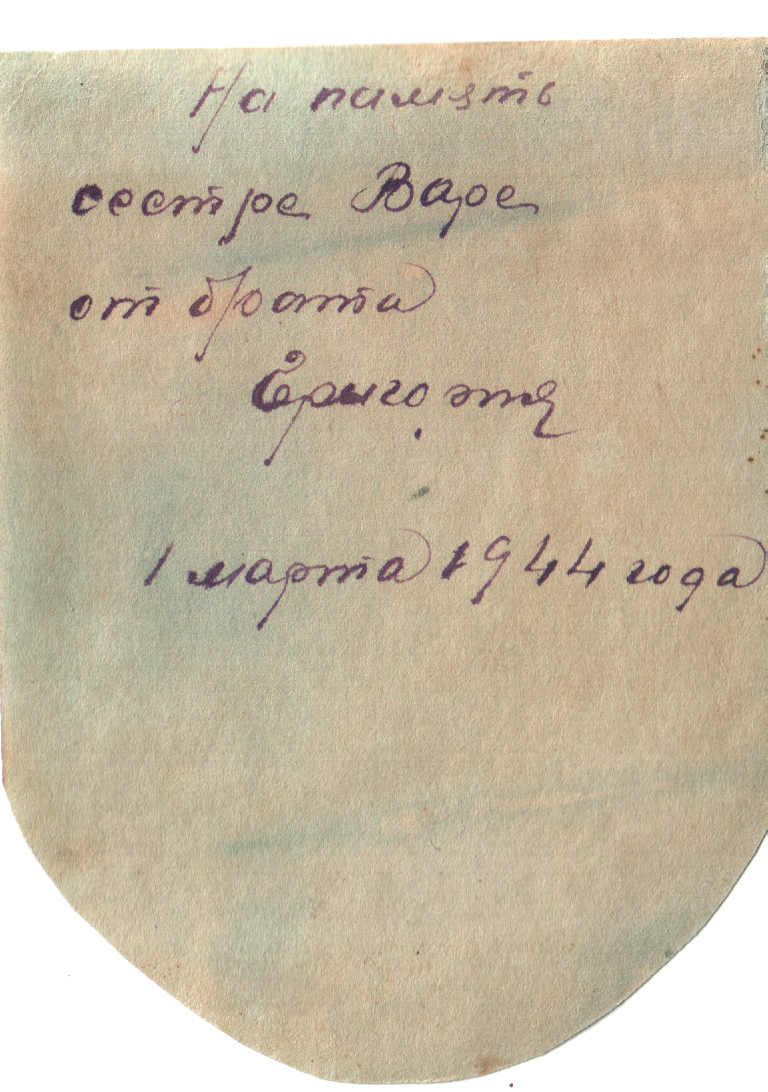 На память
сестре Варе
от брата
Григория
1 марта 1944 года